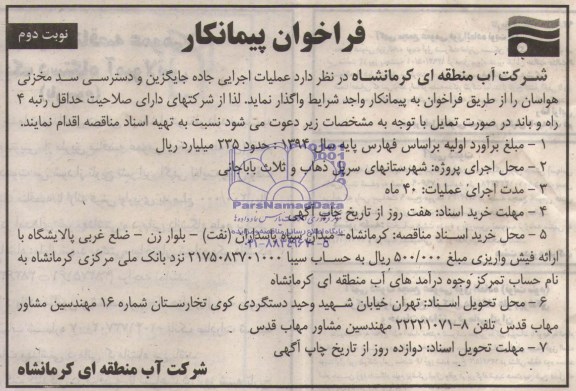 نوبت دوم
فراخوان پیمانکار
شرکت آب منطقه ای کرمانشاه در نظر دارد عملیات اجرایی جاده جایگزین و دسترسی سد مخزنی
هواسان را از طریق فراخوان به پیمانکار واجد شرایط واگذار نماید. لذا از شرکتهای دارای صلاحیت حداقل رتبه ۴
راه و باند در صورت تمایل با توجه به مشخصات زیر دعوت می شود نسبت به تهیه اسناد مناقصه اقدام نمایند.
۱ - مبلغ برآورد اولیه براساس فهارس پایه سال ۱۳۹۴ : حدود ۲۳۵ میلیارد ریال
۲ - محل اجرای پروژه: شهرستانهای سرپل ذهاب و ثلاث باباجانی
۳ - مدت اجرای عملیات: ۴۰ ماه
۴ - مهلت خرید اسناد: هفت روز از تاریخ چاپ آگهی
۵ - محل خرید اسناد مناقصه: کرمانشاه - میدان سپاه پاسداران (نفت) - بلوار زن - ضلع غربی پالایشگاه با
ارائه فیش واریزی مبلغ ۵۰۰/۰۰۰ ریال به حساب سیبا ۲۱۷۵۰۸۳۷۰۱۰۰۰ نزد بانک ملی مرکزی کرمانشاه به
نام حساب تمرکز وجوه درآمد های آب منطقه ای کرمانشاه
۶ - محل تحویل اسناد: تهران خیابان شهید وحید دستگردی کوی تخارستان شماره ۱۶ مهندسین مشاور
مهاب قدس تلفن ۸-۲۲۲۲۱۰۷۱ مهندسین مشاور مهاب قدس
۷ - مهلت تحویل اسناد: دوازده روز از تاریخ چاپ آگهی
شرکت آب منطقه ای کرمانشاه
ParsNamadData